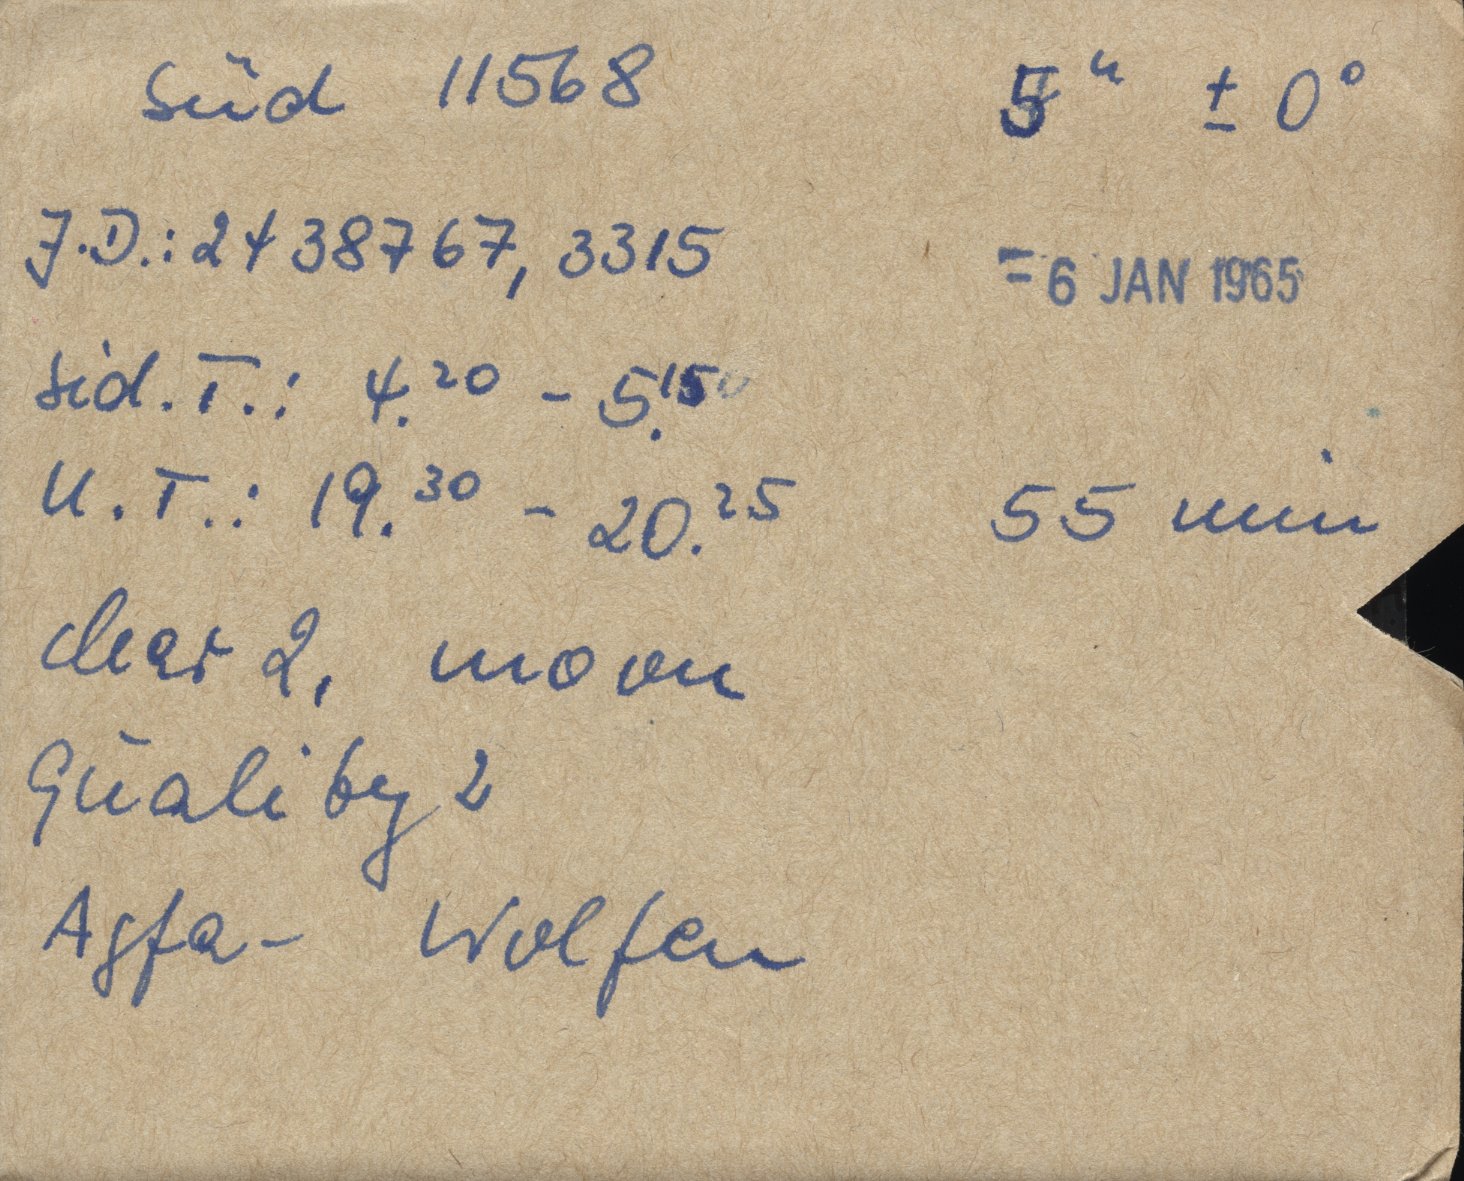 Süd 11568 5ʰ ± 0°
J.D.: 2438767,3315
= 6 JAN 1965
sid. T.: 4.²⁰ - 5.¹⁵
U.T.: 19.³⁰ - 20.²⁵ 55 min
clear 2, moon
Quality 2
Agfa- Wolfen